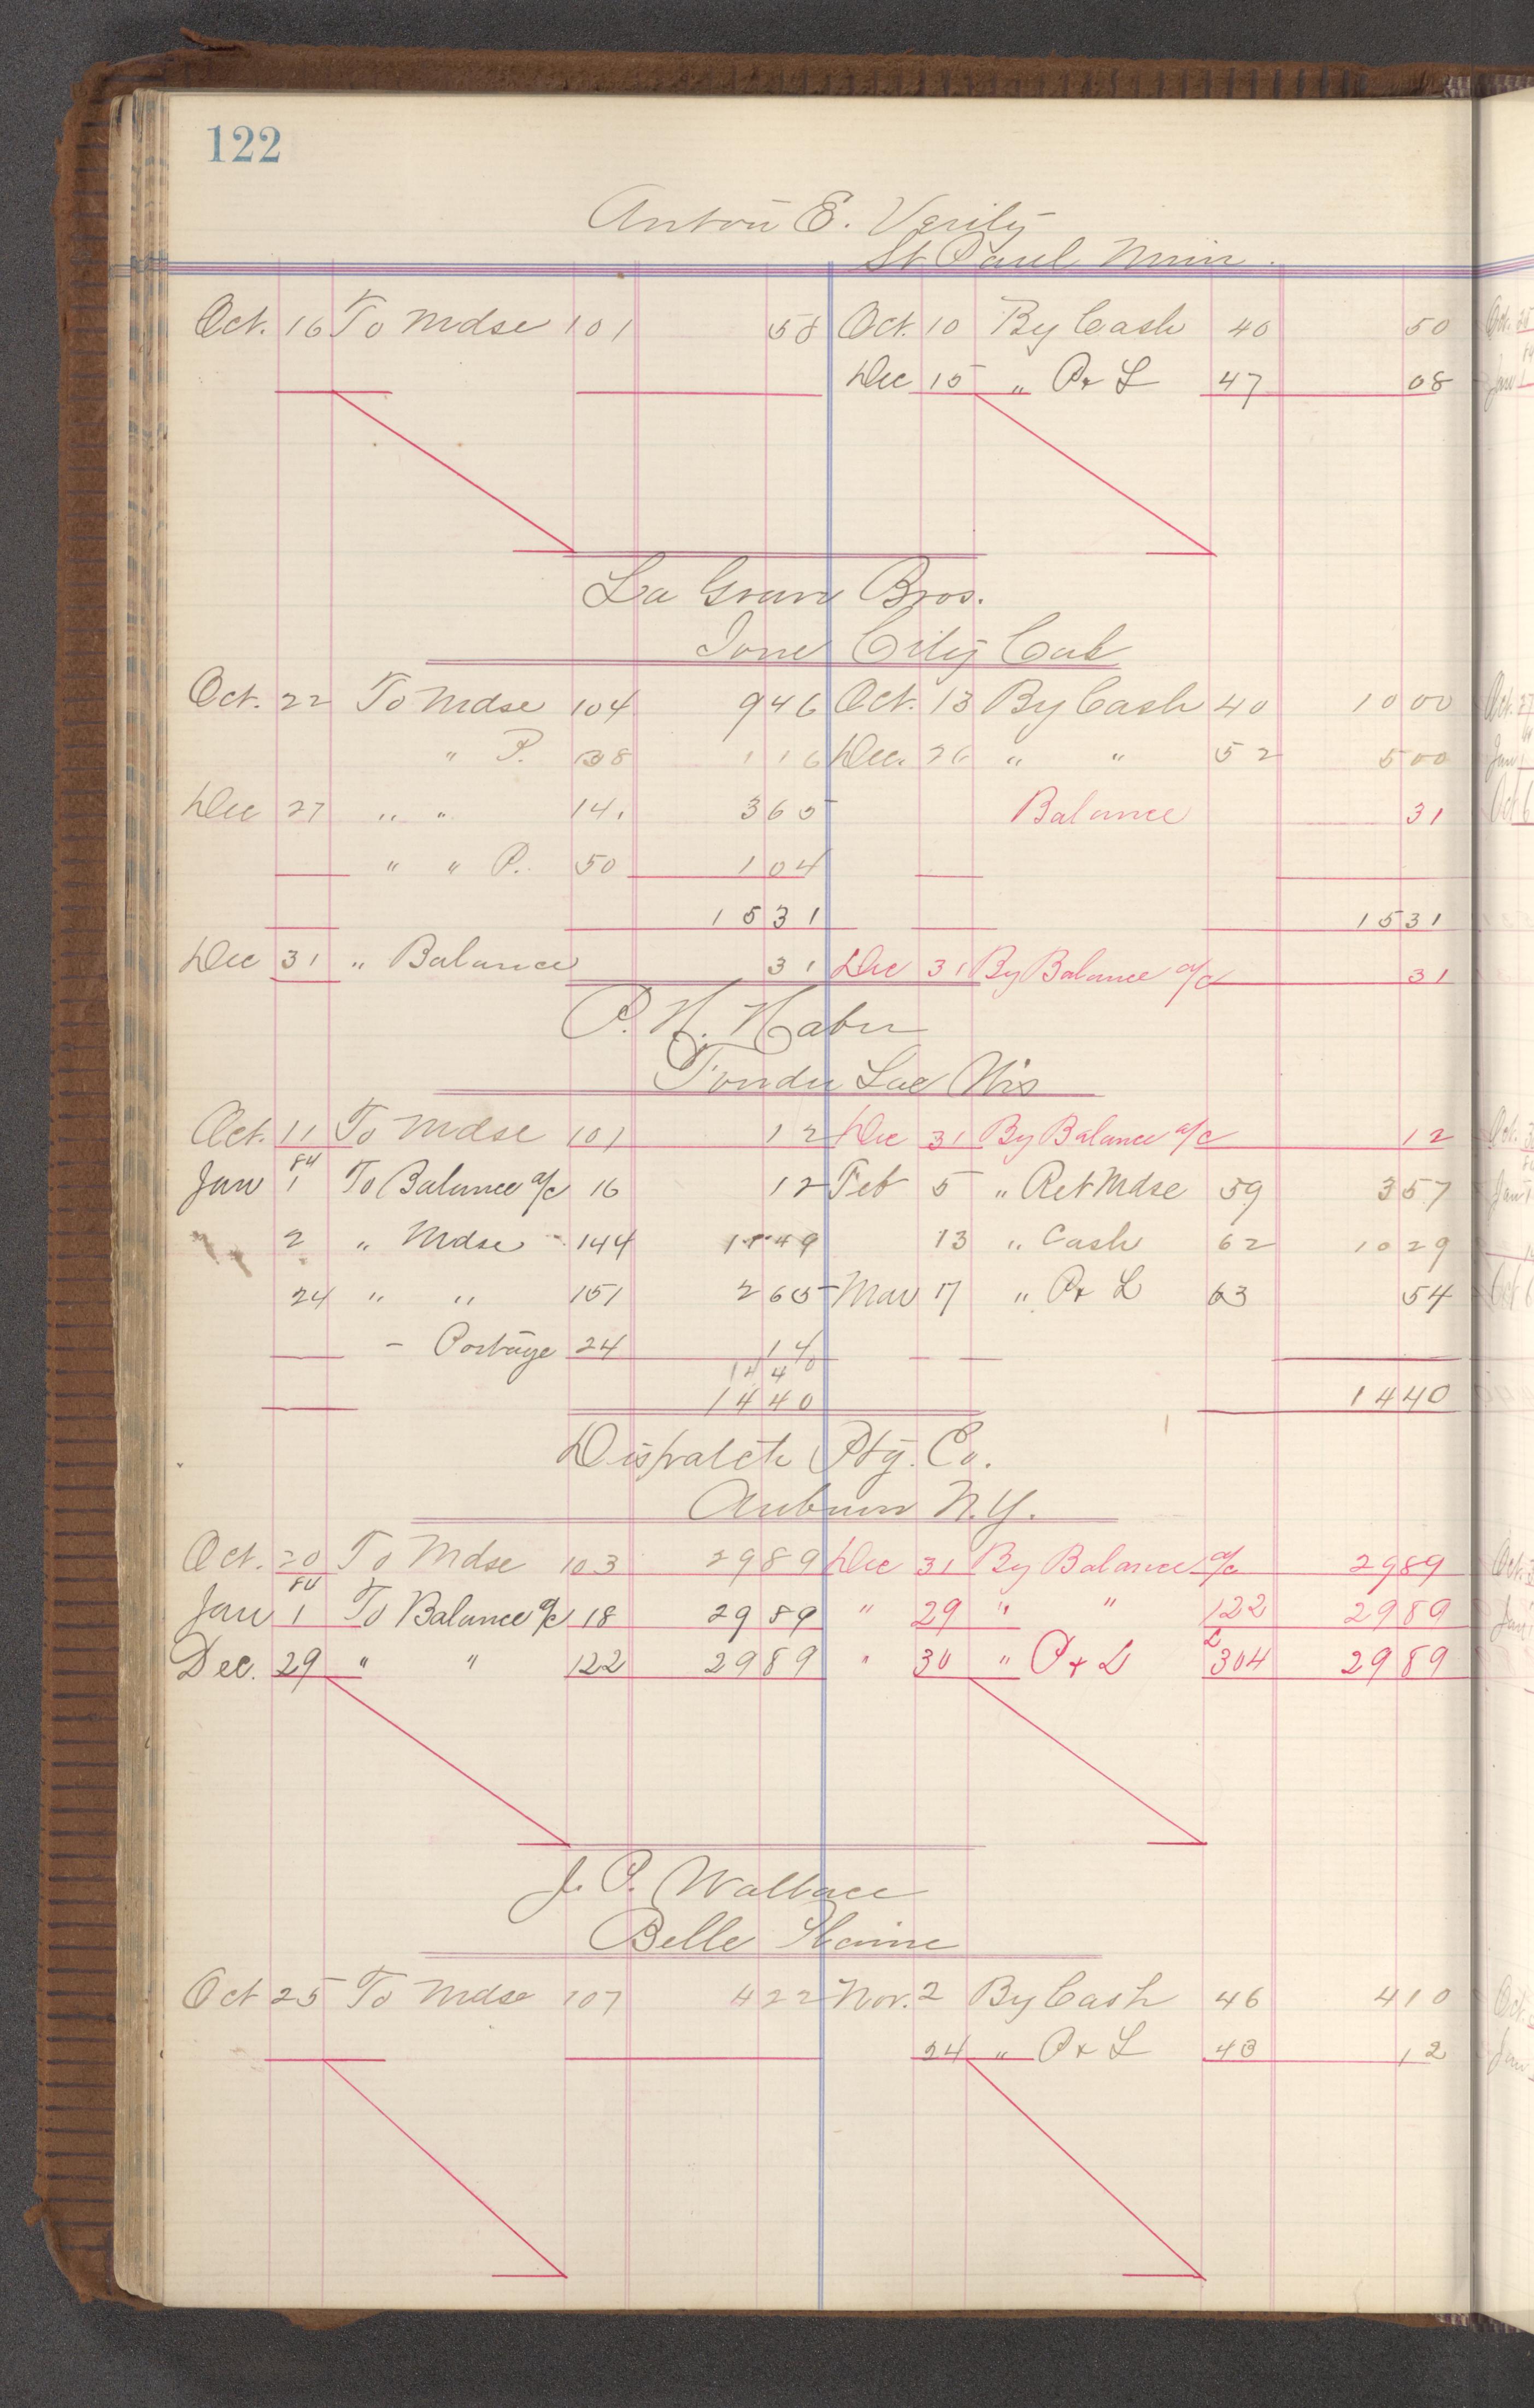 122
Anton E. Verity
St Paul Minn.
Oct. 16 To Mdse 101 58 Oct. 10 By Cash 40 50
Dec 15 " P & L 47 08
La Grave Bros.
Ione City Cal
Oct. 22 To Mdse 104 9 46 Oct. 13 By Cash 40 10 00
" P. 38 1 16 Dec. 26 " " 52 5 00
Dec 27 " " 141 3 65 Balance 31
" " P. 50 1 04
15 31 15 31
Dec 31 " Balance 31 Dec 31 By Balance a/c 31
P. H. Haber
Fondu Lac Wis
Oct. 11 To Mdse 101 12 Dec 31 By Balance a/c 12
84
Jan 1 To Balance a/c 16 12 Feb 5 " Ret Mdse 59 3 57
2 " Mdse 144 11 49 13 " Cash 62 10 29
24 " " 151 2 65 Mar 17 " P & L 63 54
- Postage 24 14
14 40
14 40 14 40
Dispatch Ptg. Co.
Auburn N.Y.
Oct. 20 To Mdse 103 29 89 Dec 31 By Balance a/c 29 89
84
Jan 1 To Balance a/c 18 29 89 " 29 " " 122 29 89
Dec. 29 " " 122 29 89 " 30 " P & L L 304 29 89
J. P. Wallace
Belle Plaine
Oct 25 To Mdse 107 4 22 Nov. 2 By Cash 46 4 10
24 " P & L 43 12